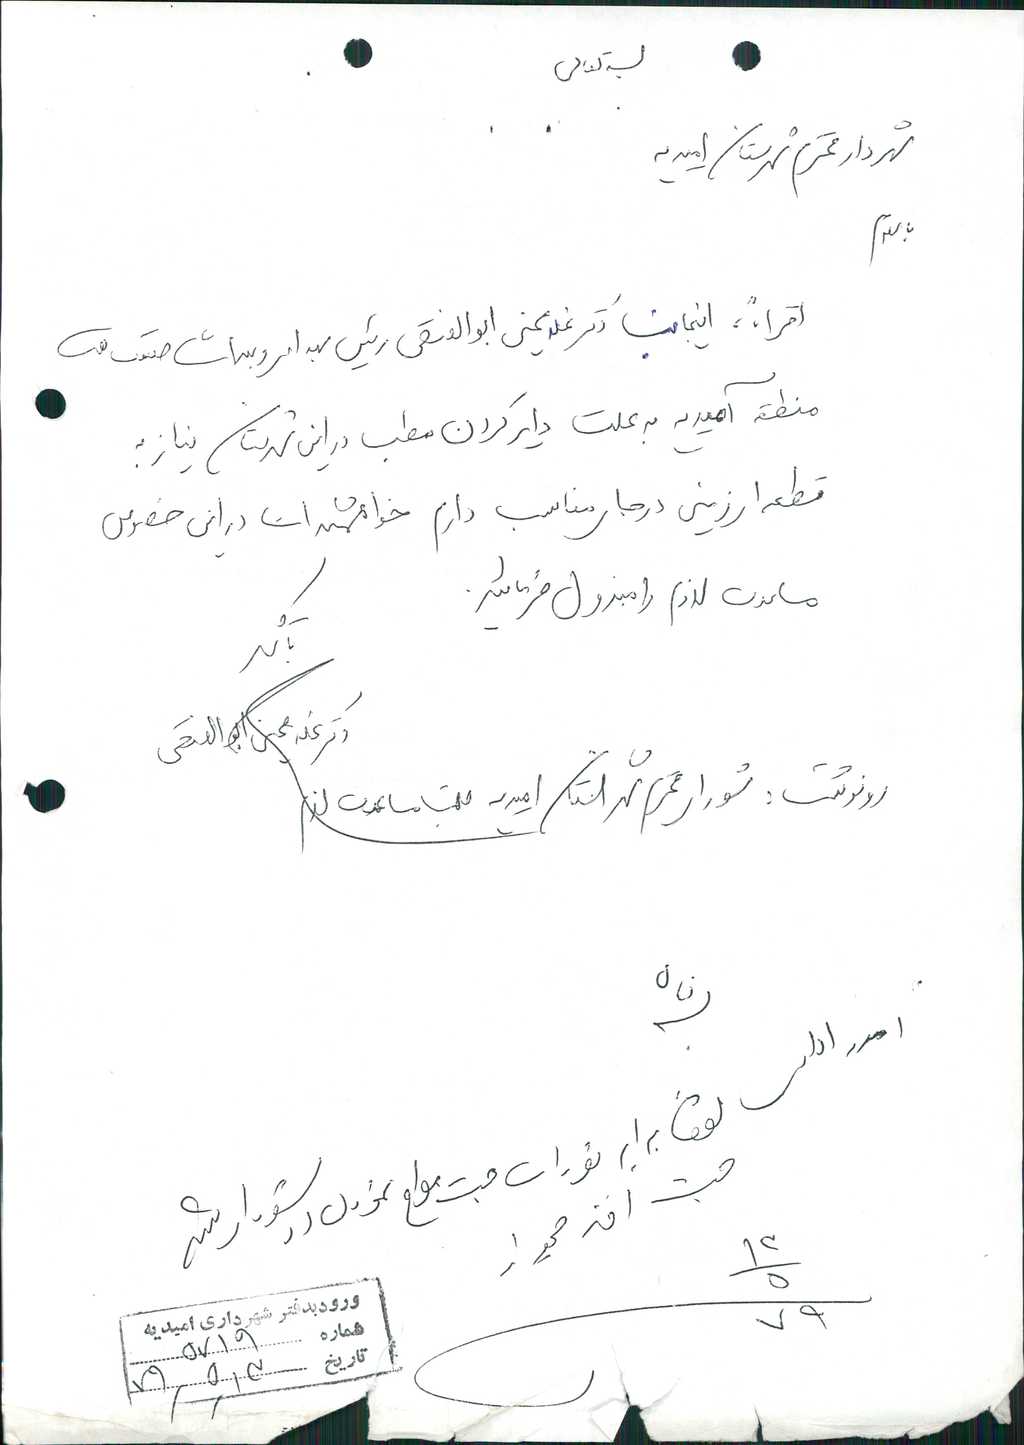 بسمه تعالی
شهردار محترم شهرستان امیدیه
باسلام
احتراماً، اینجانب دکتر غلامحسین ابوالفتحی رئیس بهداری و بهداشت صنعت نفت
منطقه آمیدیه به علت دایر کردن مطب در این شهرستان نیاز به
قطعه ارزمینی در جای مناسب دارم خواهشمند است در این خصوص
مساعدت لازم را مبذول فرمائید.
باتشکر
دکتر غلامحسین ابوالفتحی
رونوشت: شورای محترم شهرستان امیدیه جهت مساعدت لازم
امور اداری
لطفاً برابر مقررات جهت
در شورای شهر
جهت اخذ مجوز
۱۲
۵
۷۹
ورود بدفتر شهرداری امیدیه
شماره ۵۷۱۹
تاریخ ۷۹/۵/۱۲